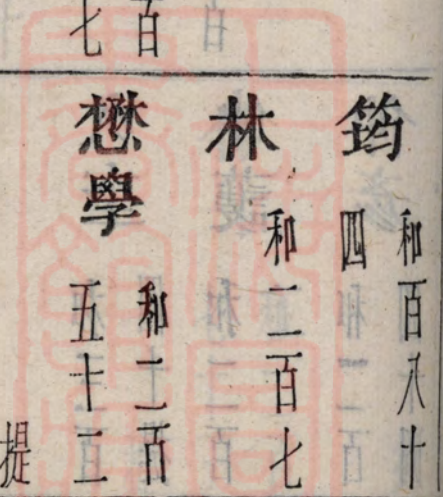 百
七
筠
和百八十
四
林
和二百七
懋學
和二百
五十二
提